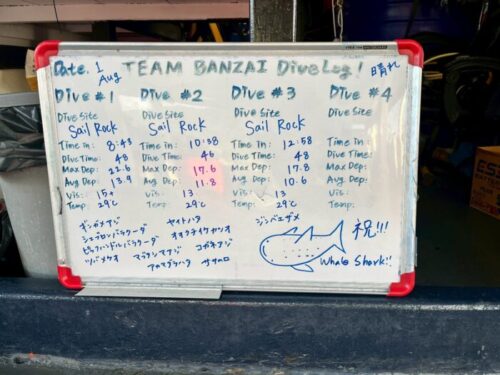 Date. 1 Aug TEAM BANZAI Dive Log! 晴れ
Dive #1 Dive #2 Dive #3 Dive #4
Dive Site Dive Site Dive Site Dive Site
Sail Rock Sail Rock Sail Rock
Time in: 8:43 Time in: 10:58 Time in: 12:58 Time in:
Dive Time: 48 Dive Time: 46 Dive Time: 48 Dive Time:
Max Dep: 22.6 Max Dep: 17.6 Max Dep: 17.8 Max Dep:
Avg Dep: 13.9 Avg Dep: 11.8 Avg Dep: 10.6 Avg Dep:
Vis: 15+ Vis: 13 Vis: 13 Vis:
Temp: 29℃ Temp: 29℃ Temp: 29℃ Temp:
ギンガメアジ ヤイトハタ ジンベエザメ
シェブロンバラクーダ オオクチイケカツオ 祝!!!
ピックハンドルバラクーダ コガネアジ
ツバメウオ マブタシマアジ
Whale Shark!!